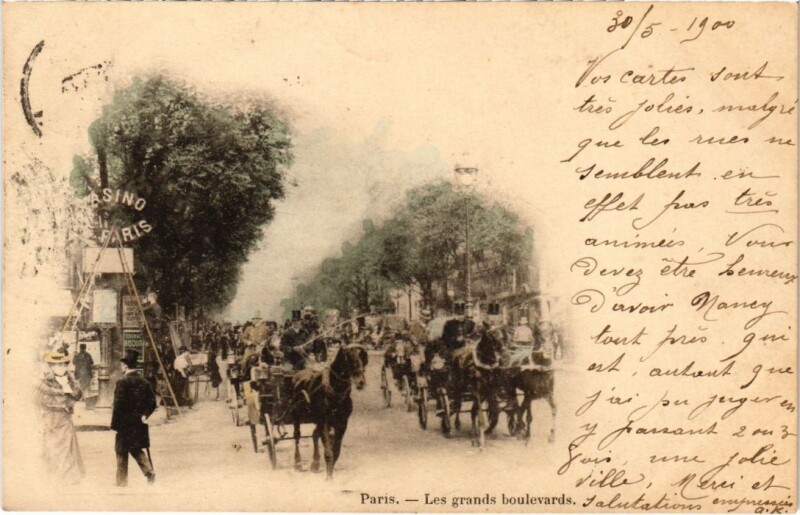 30/5 - 1900
Vos cartes sont
très jolies, malgré
que les rues ne
semblent en
effet pas très
animées, Vous
devez être heureux
d'avoir Nancy
tout près, qui
est, autant que
j'ai pu juger en
y passant 2 ou 3
fois, une jolie
ville, Merci et
salutations empressées
a.K.
CASINO
DE
PARIS
Paris. — Les grands boulevards.